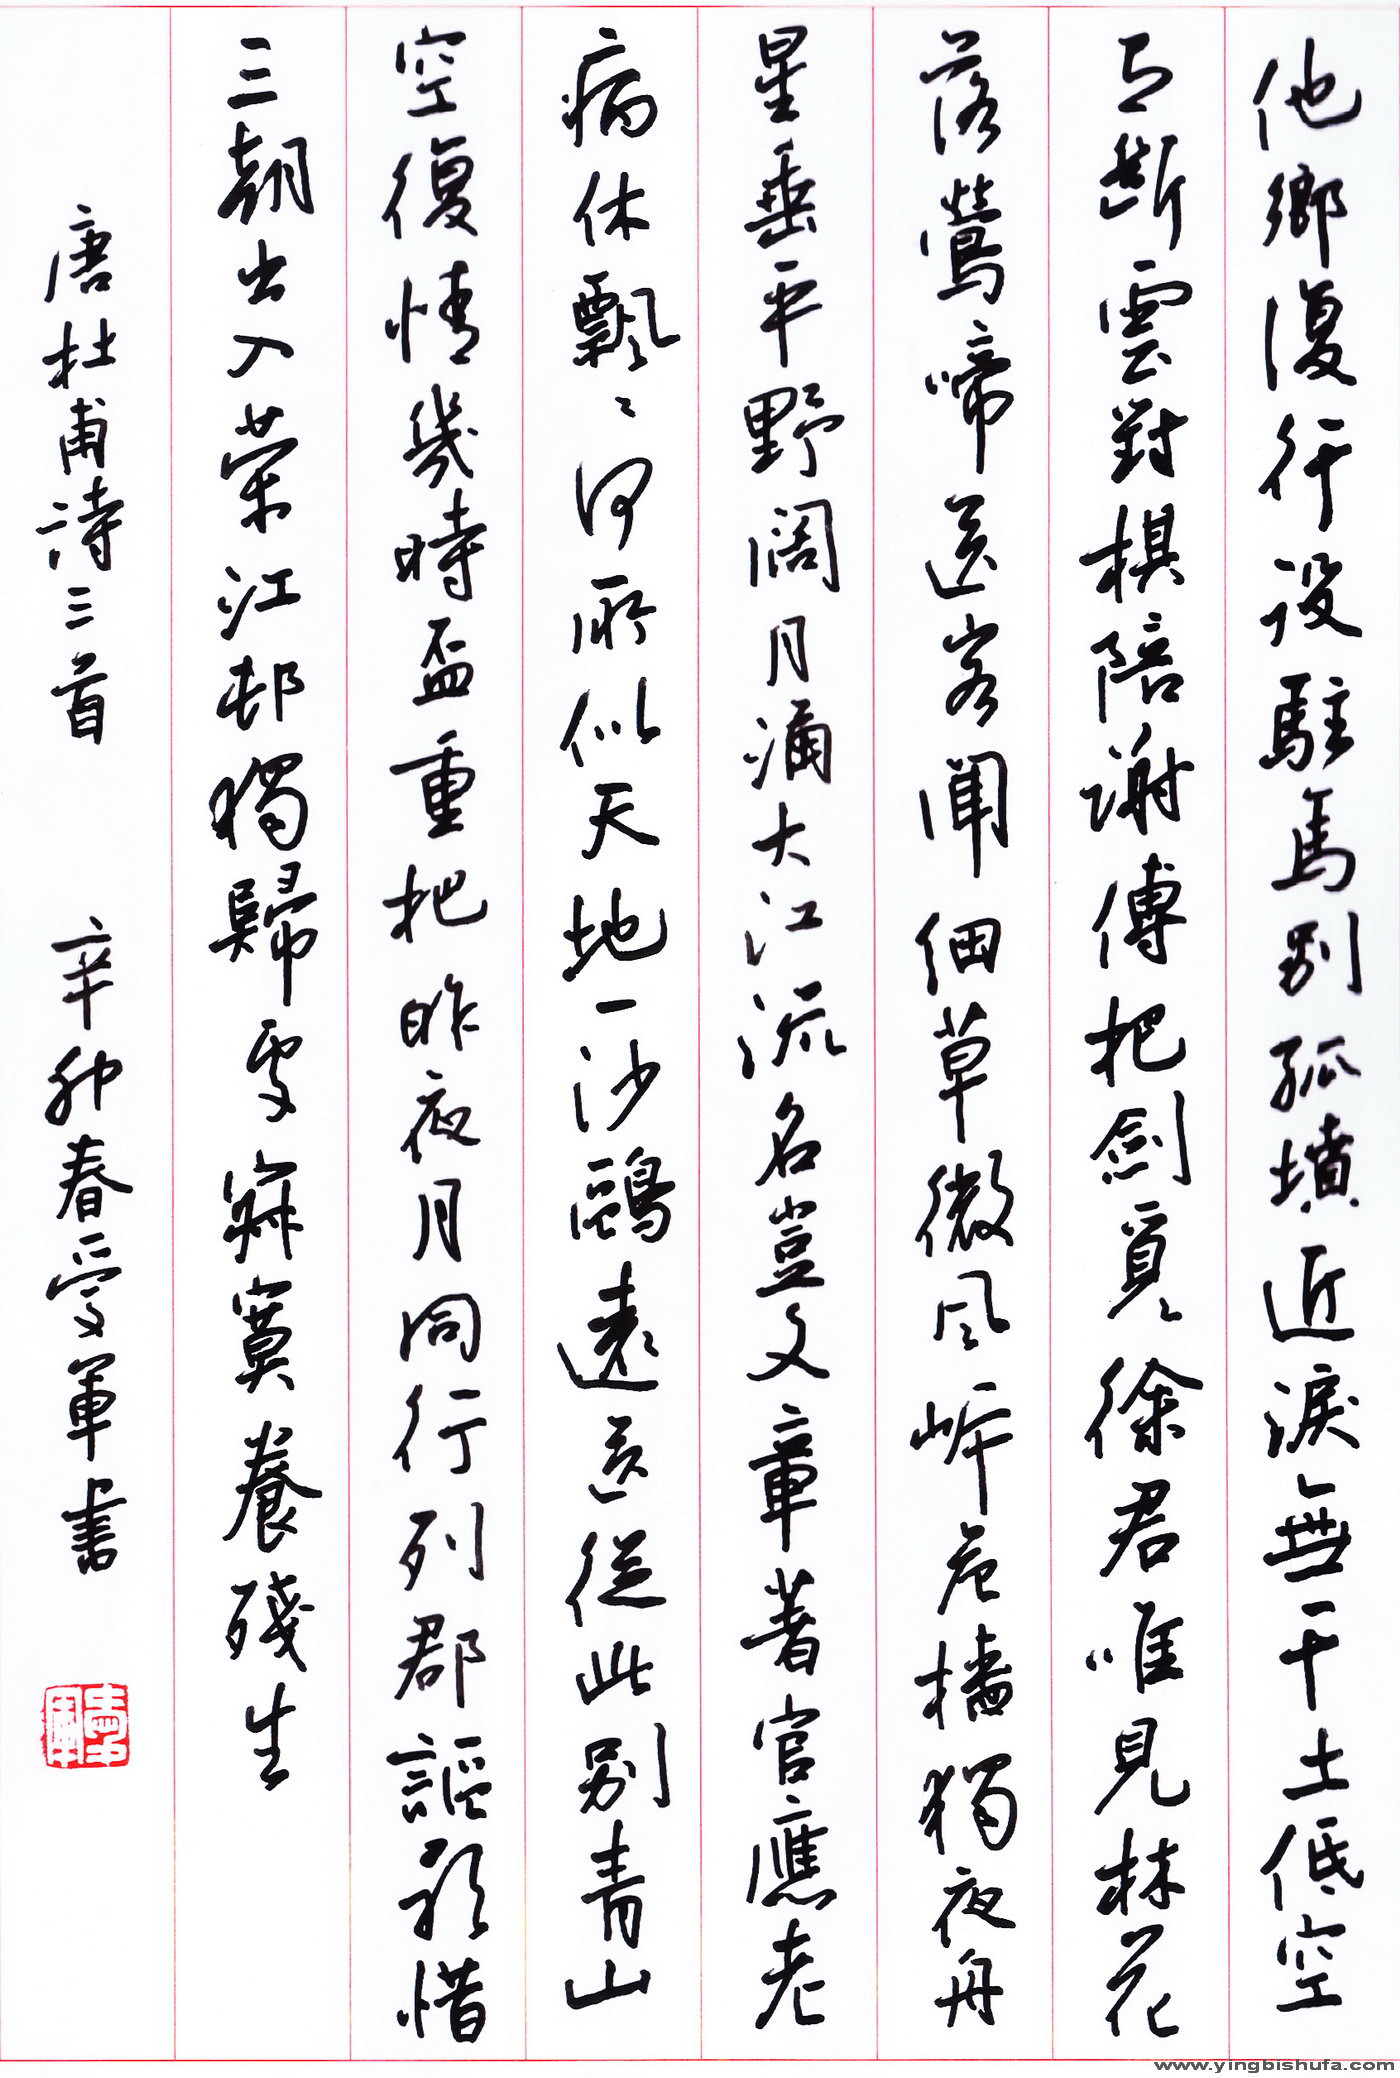 他鄉復行役駐馬別孤墳近淚無干土低空
有斷雲對棋陪謝傅把劍覓徐君唯見林花
落鶯啼送客聞細草微風岸危檣獨夜舟
星垂平野闊月涌大江流名豈文章著官應老
病休飄〻何所似天地一沙鷗遠送從此別青山
空復情幾時盃重把昨夜月同行列郡謳歌惜
三朝出入榮江邨獨歸處寂寞養殘生
唐杜甫詩三首 辛卯春受軍書
www.yingbishufa.com